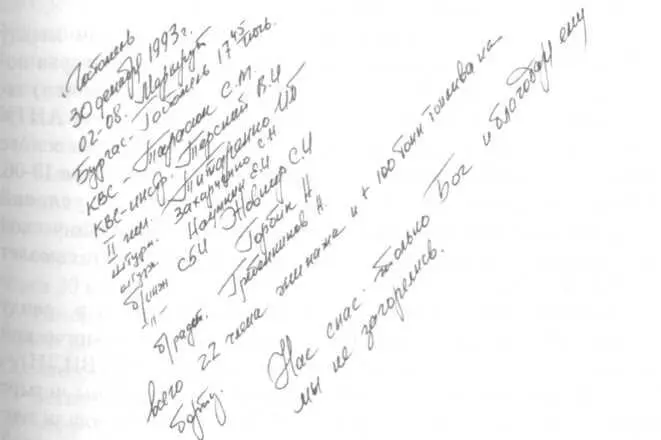 Гостомель
30 декабря 1993г.
02-08. Маршрут
Бургас-Гостомель 17 45 ночь.
КВС - Тарасюк С.М.
КВС-инстр. Терский В.И
II пил. Титаренко ИП
штурм. Захарченко С.Н
штур. Наумкин Е.И
б/инж СБИ Жовнир С.И
-"- Горбик Н
б/радст. Гребенников А.
всего 22 члена экипажа и + 100 тонн топлива на
борту. Нас спас только Бог и благодаря ему
мы не загорелись.